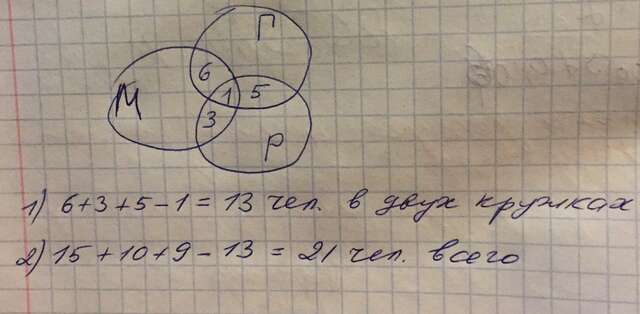 П
6
М
1 5
3
Р
1) 6+3+5-1 = 13 чел. в двух кружках
2) 15+10+9-13 = 21 чел. всего